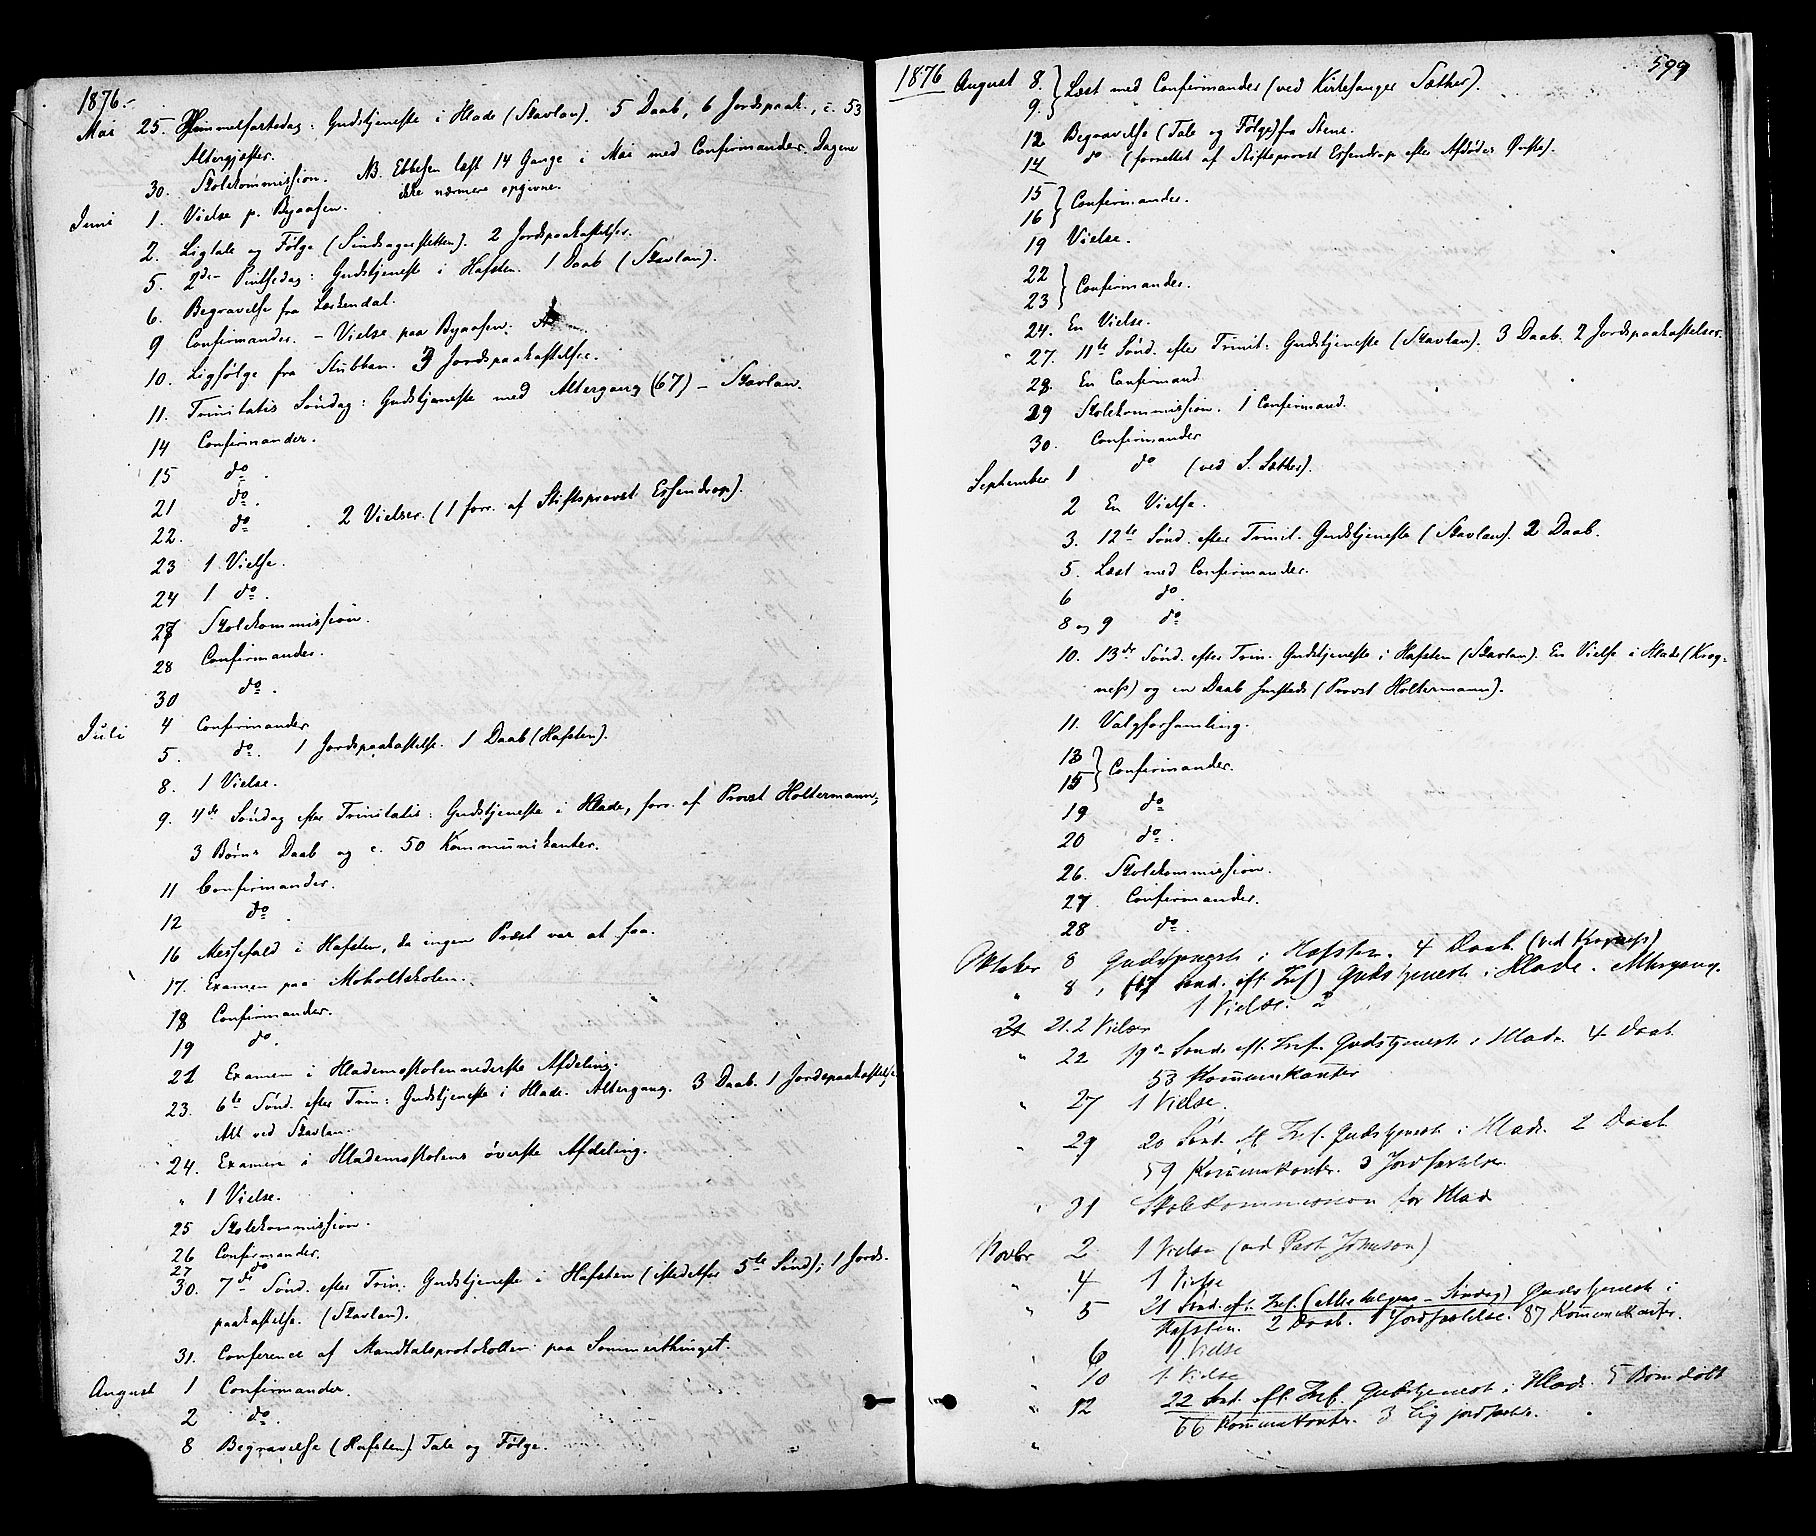 1876.-
Mai 25. Himmelfartsdag: Gudstjeneste i Hlade (Skavlan). 5 Daab, 6 Jordspaak., c. 53
Altergjæster.
30. Skolekommission. NB. Ebbesen læst 14 Gange i Mai med Confirmander. Dagene
ikke nærmere opgivne.
Juni 1. Vielse p. Byaasen.
2. Ligtale og Følge. 2 Jordspaakastelser.
5. 2den Pintsedag: Gudstjeneste i Hafsten. 1 Daab (Skavlan).
6. Begravelse fra Leckendal.
9 Confirmander. - Vielse paa Byaasen.
10. Ligfølge fra Stubban. 3 Jordspaakastelser.
11. Trinitatis Søndag: Gudstjeneste med Altergang (67) - Skavlan.
14 Confirmander.
15 do
21 do.
22. do. 2 Vielser. (1 forr. af Stiftsprovst Essendrop).
23 1 Vielse.
24 1 do.
27 Skolekommission.
28 Confirmander.
30 do.
Juli 4 Confirmander
5. do. 1 Jordspaakastelse. 1 Daab (Hafsten).
8. 1 Vielse.
9. 4de Søndag efter Trinitatis: Gudstjeneste i Hlade, forr. af Provst Holtermann,
3 Børns Daab og c. 50 Kommunikanter.
11 Confirmander.
12 do.
16 Messefald i Hafsten, da ingen Præst var at faa.
17. Examen paa Moholtskolen.
18 Confirmander.
19 do.
21 Examen i Hlademoskolens nederste Afdeling.
23. 6te Sønd. efter Trin: Gudstjeneste i Hlade. Altergang. 3 Daab. 1 Jordspaakastelse
Alt ved Skavlan.
24. Examen i Hlademoskolens øverste Afdeling.
" 1 Vielse.
25 Skolekommission.
26 Confirmander.
27 do
30. 7de Sønd. efter Trin. Gudstjeneste i Hafsten (istedetfor 5te Sønd); 1 Jords-
paakastelse. (Skavlan).
31. Conference af Mandtalsprotokollen paa Sommerthinget.
August 1 Confirmander.
2 do.
8 Begravelse (Hafsten) Tale og Følge.
599
1876 August 8. 9. Læst med Confirmander (ved Kirkesanger Sæther).
12 Begravelse (Tale og Følge) fra Stene.
14 do (forrettet af Stiftsprovst Essendrop efter Afdødes Ønske).
15 16 Confirmander.
19 Vielse.
22 23 Confirmander.
24. En Vielse.
" 27. 11te Sønd. efter Trinit: Gudstjeneste (Skavlan). 3 Daab. 2 Jordspaakastelser.
28 En Confirmand.
29 Skolekommission. 1 Confirmand.
30. Confirmander
September 1 do (ved S. Sæther).
2 En Vielse.
3. 12te Sønd. efter Trinit. Gudstjeneste (Skavlan). 2 Daab.
5. Læst med Confirmander.
6 do.
8 og 9 do
10. 13de Sønd. efter Trin. Gudstjeneste i Hafsten (Skavlan). En Vielse i Hlade (Krog-
ness) og en Daab sammesteds (Provst Holtermann).
11. Valgforsamling.
13 15 Confirmander.
19 do
20 do.
26. Skolekommission.
27. Confirmander.
28 do.
Oktober 8 Gudstjeneste i Hafsten. 4 Daab. (ved Krogness)
" 8 Sønd. eft. Tref) Gudstjeneste i Hlade. Altergang.
1 Vielse. 2
21. 2 Vielser
" 22 19de Sønd. eft. Tref. Gudstjeneste i Hlade. 4 Daab
53 Kommunikanter
" 27 1 Vielse.
" 29 20 Sønd. eft. Tref. Gudstjeneste i Hlade. 2 Daab
59 Kommunikanter. 3 Jordfæstelser.
" 31 Skolekommission for Hlade
Novbr 2 1 Vielse (ved Past. Johnson)
" 4 1 Vielse
" 5 21 Sønd. eft. Tref. (Allehelgens-Søndag) Gudstjeneste i
Hafsten. 2 Daab. 1 Jordfæstelse. 87 Kommunikanter.
" 6 1 Vielse
" 10 1 Vielse
" 12 22 Sønd. eft. Tref. Gudstjeneste i Hlade. 5 Børn døbt
66 Kommunikanter. 3 Lig jordfæstet.
"